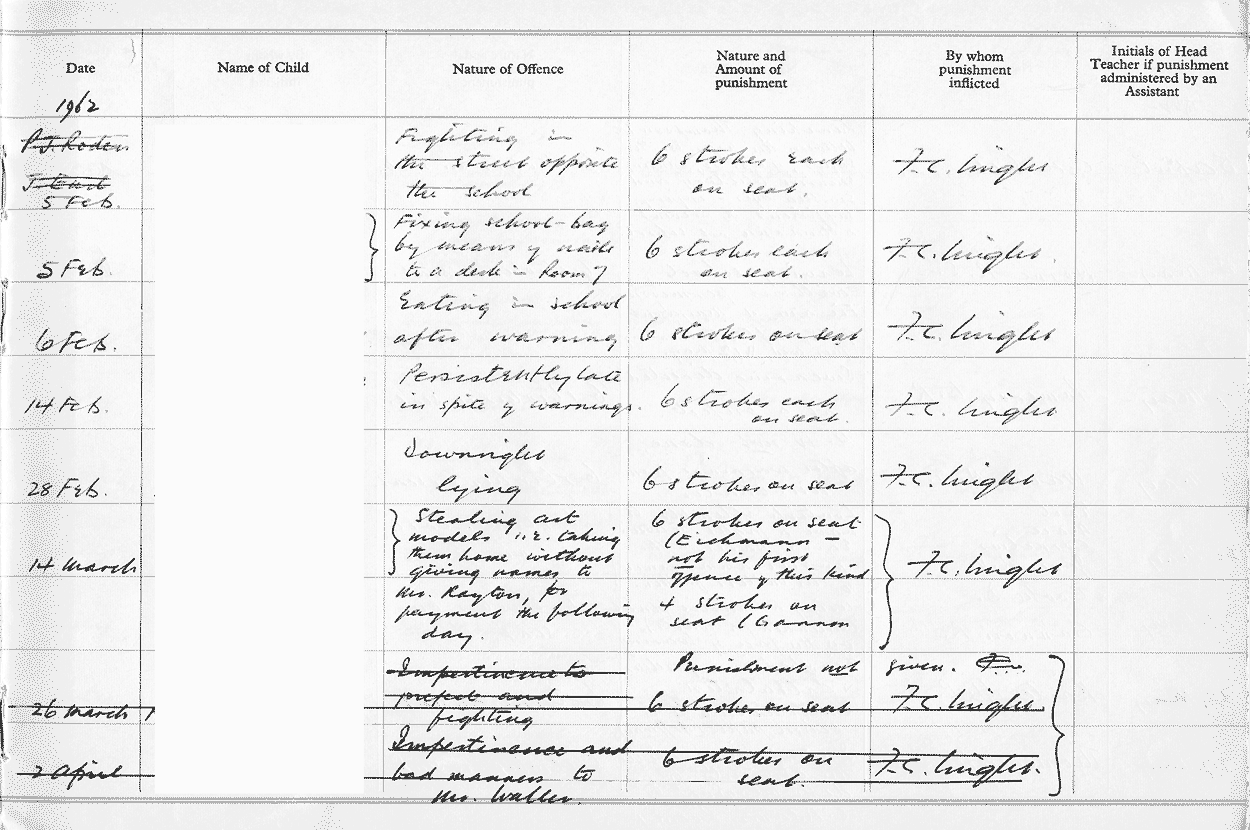 Date
Name of Child
Nature of Offence
Nature and
Amount of
punishment
By whom
punishment
inflicted
Initials of Head
Teacher if punishment
administered by an
Assistant
1962
5 Feb.
Fighting in
the street opposite
the school
6 strokes each
on seat.
F.C.
5 Feb.
Fixing school-bag
by means of nails
to a desk in Room 7
6 strokes each
on seat.
F.C.
6 Feb.
Eating in school
after warning
6 strokes on seat
F.C.
14 Feb.
Persistently late
in spite of warnings.
6 strokes each
on seat.
F.C.
28 Feb.
Downright
lying
6 strokes on seat
F.C.
14 March
Stealing art
models i.e. taking
them home without
giving names to
Mr. Rayton, for
payment the following
day.
6 strokes on seat
(Eichmann –
not his first
offence of this kind
4 strokes on
seat (Gannon
F.C.
26 March
Impertinence to
prefect and
fighting
Punishment not given.
6 strokes on seat
F.C.
2 April
Impertinence and
bad manners to
Mr. Waller.
6 strokes on
seat.
F.C.